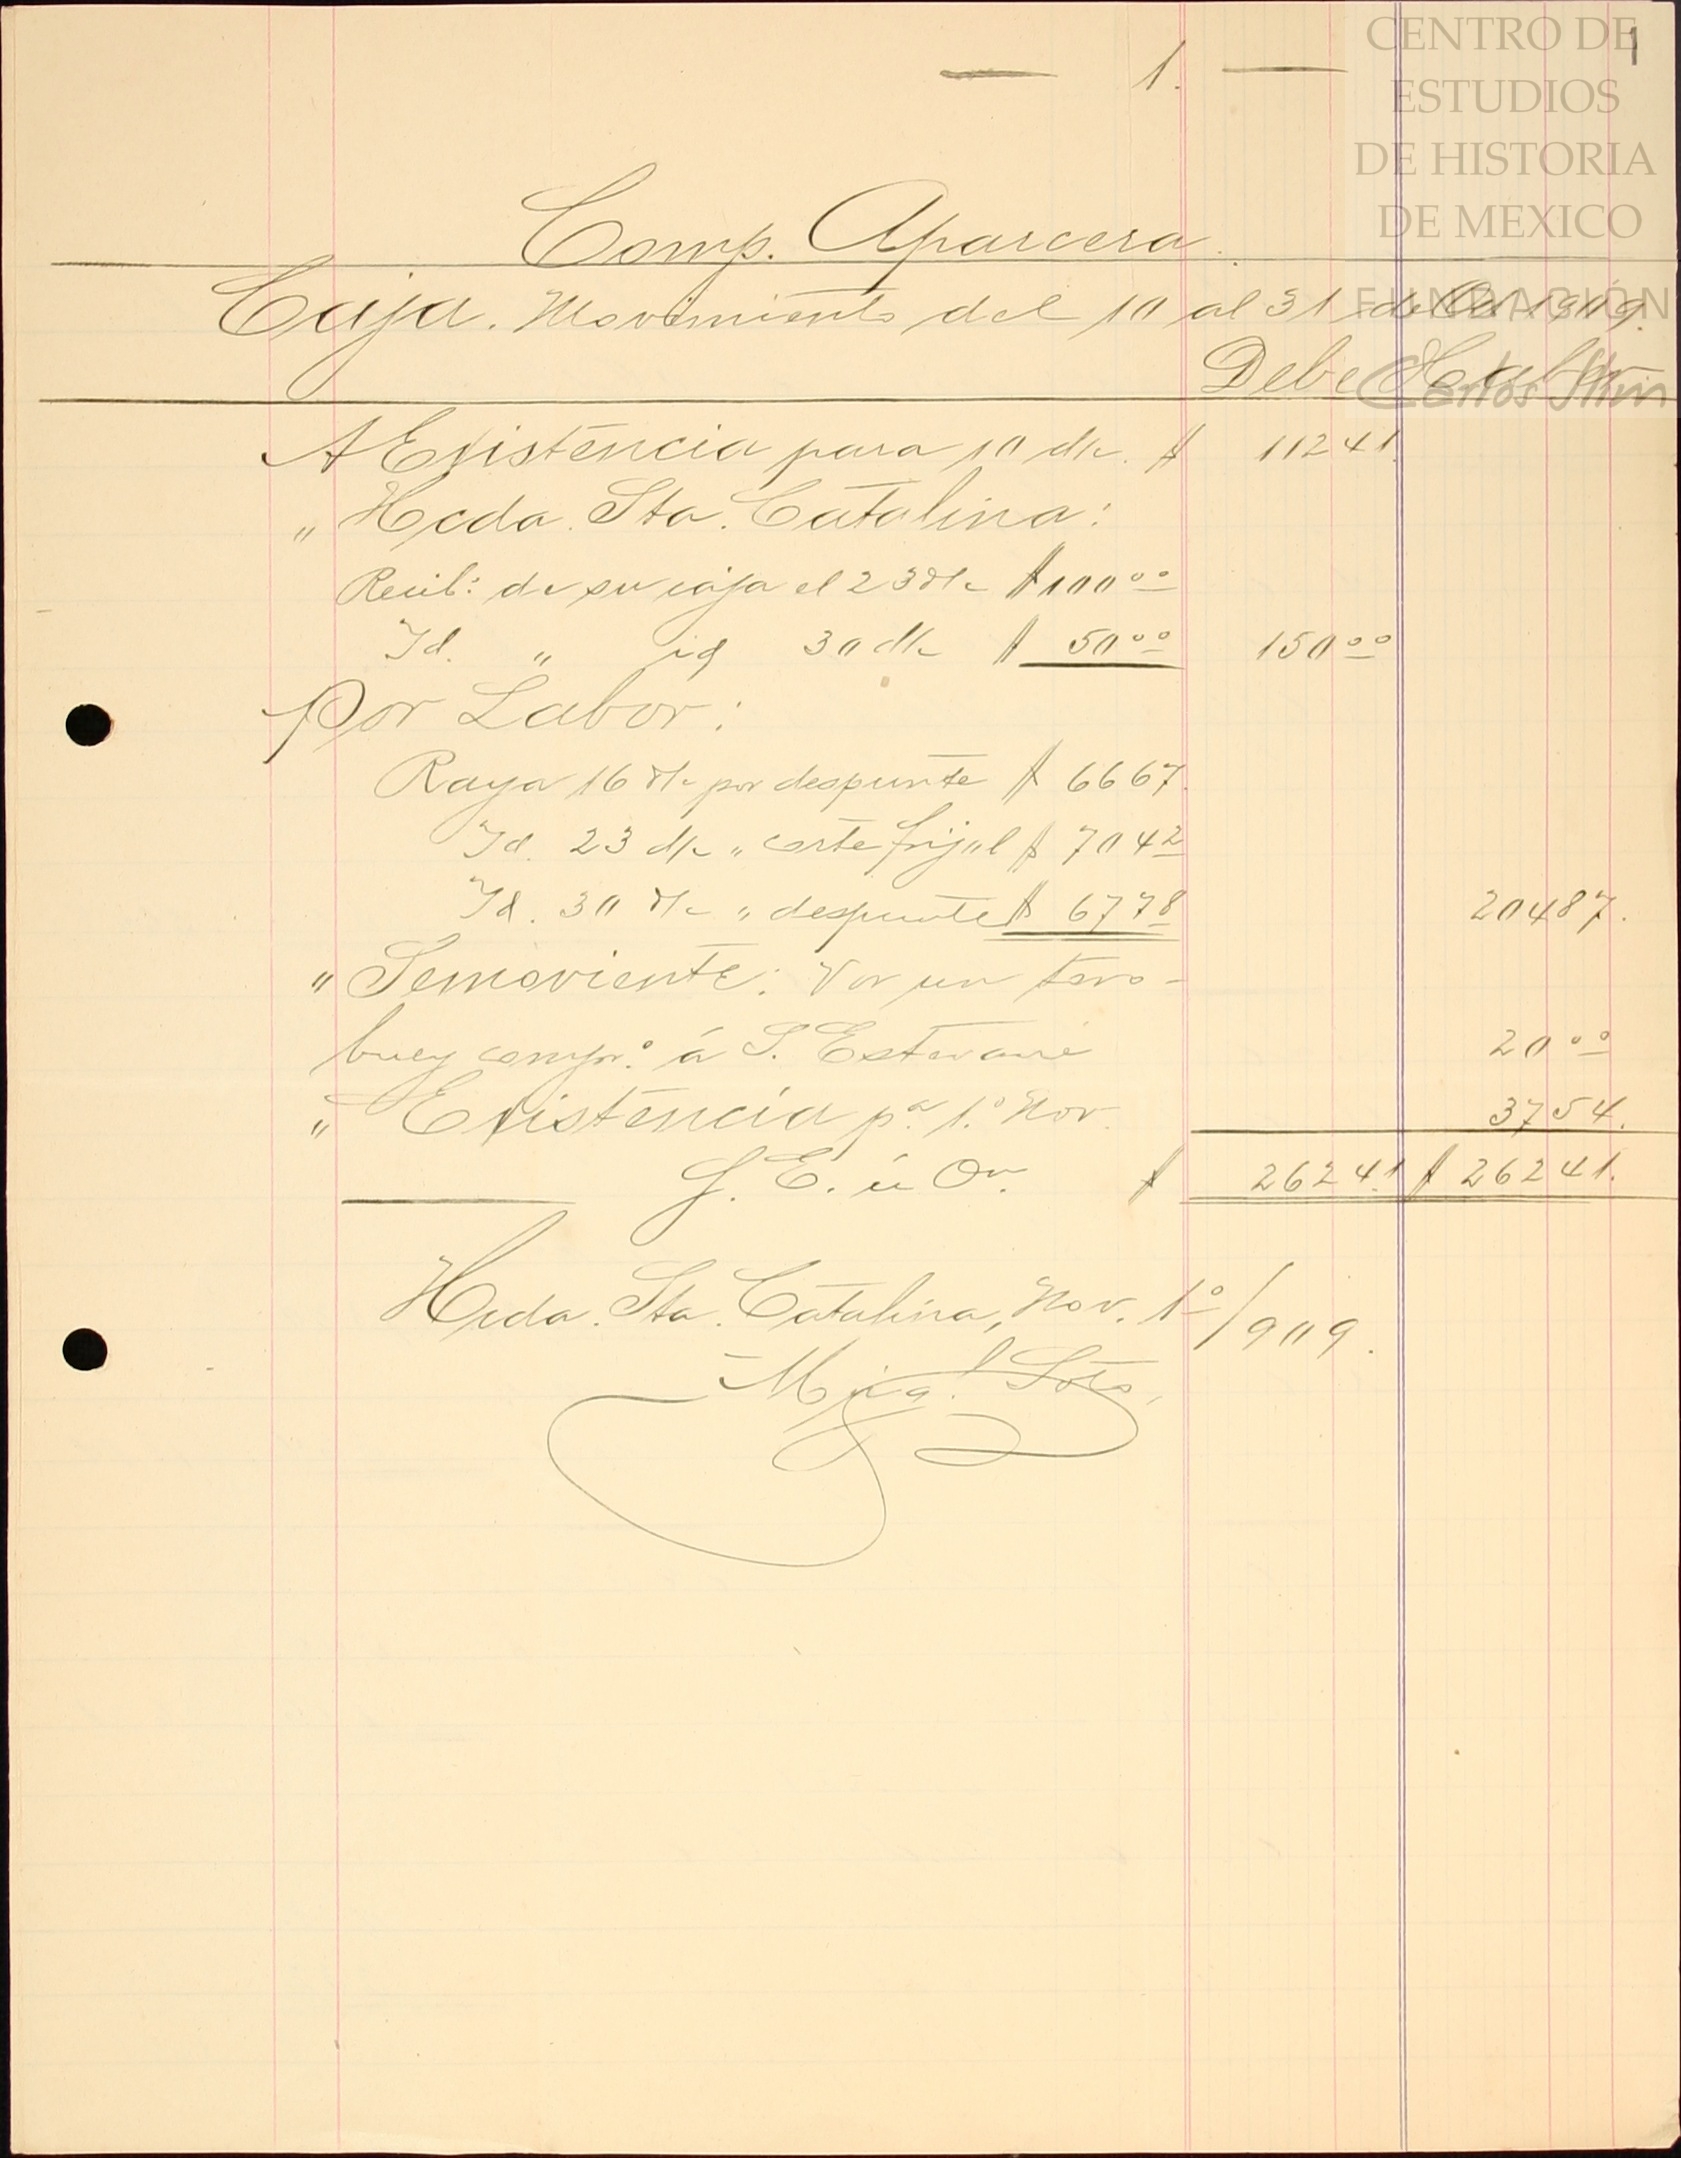 — 1. —
1
CENTRO DE
ESTUDIOS
DE HISTORIA
DE MEXICO
FUNDACIÓN
Carlos Slim
Comp. Aparcera.
Caja. Movimiento del 10 al 31 de Oct 1909.
Debe Haber
A Existencia para 10 d/c. $ 11241.
" Hcda. Sta. Catalina:
Recib: de su caja el 23 d/c $ 100 00
Id. " id 30 d/c $ 50 00 150 00
Por Labor:
Raya 16 d/c por despunte $ 6667.
Id. 23 d/c " corte frijol $ 7042
Id. 30 d/c " despunte $ 6778 20487.
" Semoviente: Por un toro-
buey compr.º á S. 20 00
" Existencia pª 1.º Nov. 3754.
S. E. ú On. $ 26241 $ 26241.
Hcda. Sta. Catalina, Nov. 1º/909.
Mig.l Soto,